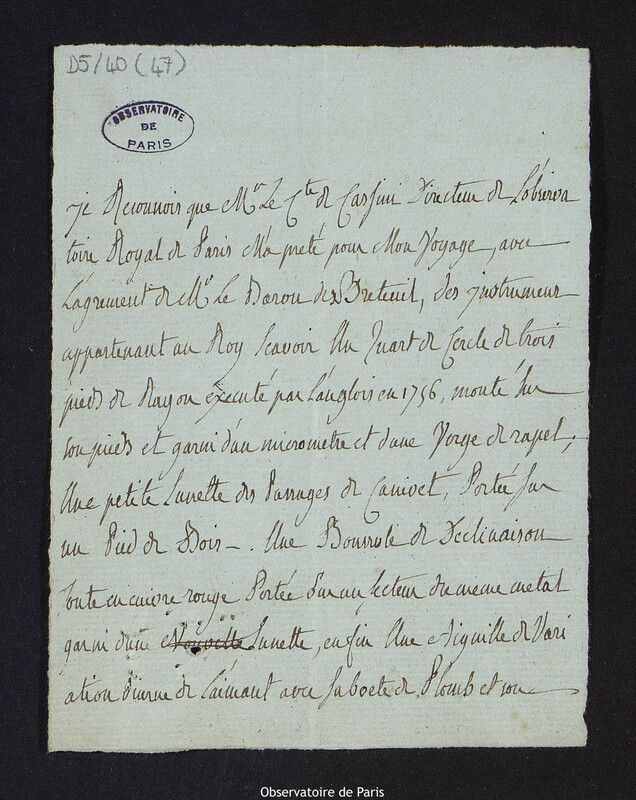 D5/40 (47)
OBSERVATOIRE
DE
PARIS
je Reconnois que Mr Le Cte de Cassini Directeur de Lobserva
toire Royal de Paris Ma preté pour Mon Voyage, avec
Lagrement de Mr Le Baron de Breteuil, des jnstrumens
appartenant au Roy Scavoir Un Quart de Cercle de trois
pieds de Rayon éxecuté par Langlois en 1756, monté sur
son pieds et garni d'un micrometre et dune Verge de rapel,
Une petite Lunette des Passages de Canivet, Portée sur
un Pied de Bois _. Une Boussole de Declinaison
toute en cuivre rouge Portée Sur un secteur du meme metal
garni dune Nouvelle Lunette, enfin Une Aiguille de Vari
ation diurne de Laimant avec sa boete de Plomb et son
Observatoire de Paris